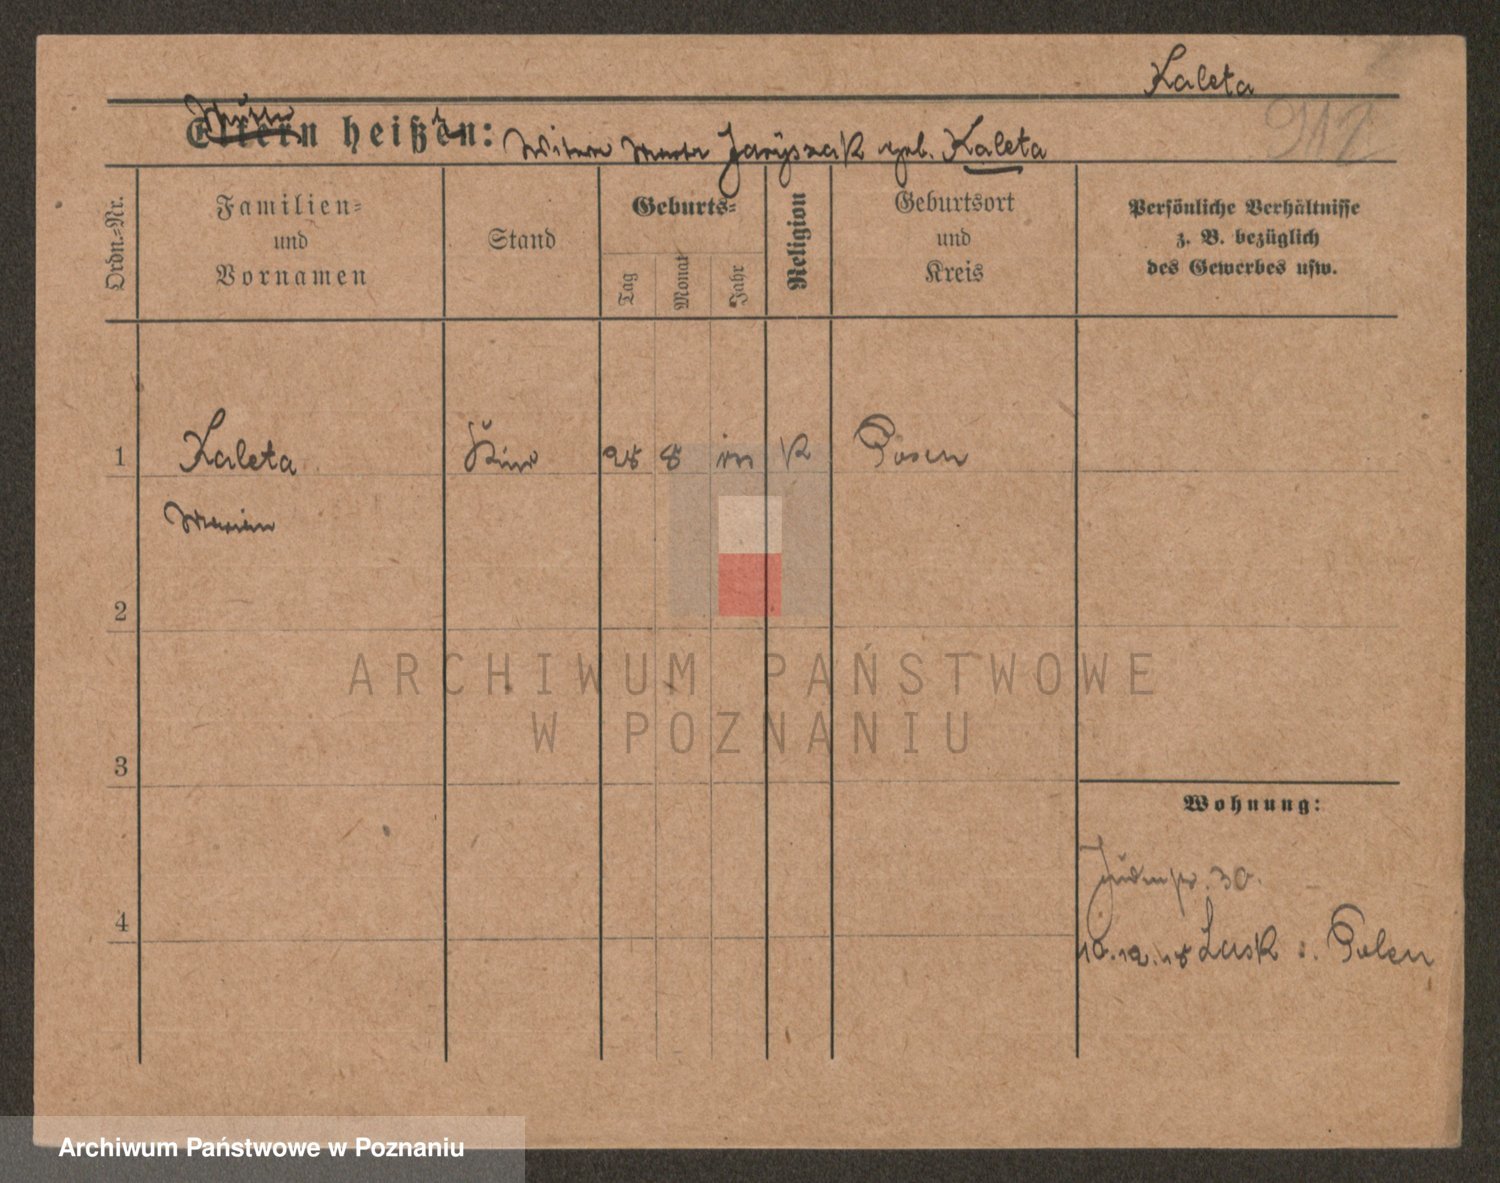 Kaleta
Mutter
Eltern heißen: Witwe Marta Jaryszak geb. Kaleta
912
Ordn.-Nr.
Familien-
und
Vornamen
Stand
Geburts-
Tag
Monat
Jahr
Religion
Geburtsort
und
Kreis
Persönliche Verhältnisse
z. B. bezüglich
des Gewerbes usw.
1
Kaleta
Kind
28
8
K
Posen
Marian
2
ARCHIWUM PAŃSTWOWE
W POZNANIU
3
Wohnung:
Judenstr. 30.
4
10.12.18 Lask i. Polen
Archiwum Państwowe w Poznaniu